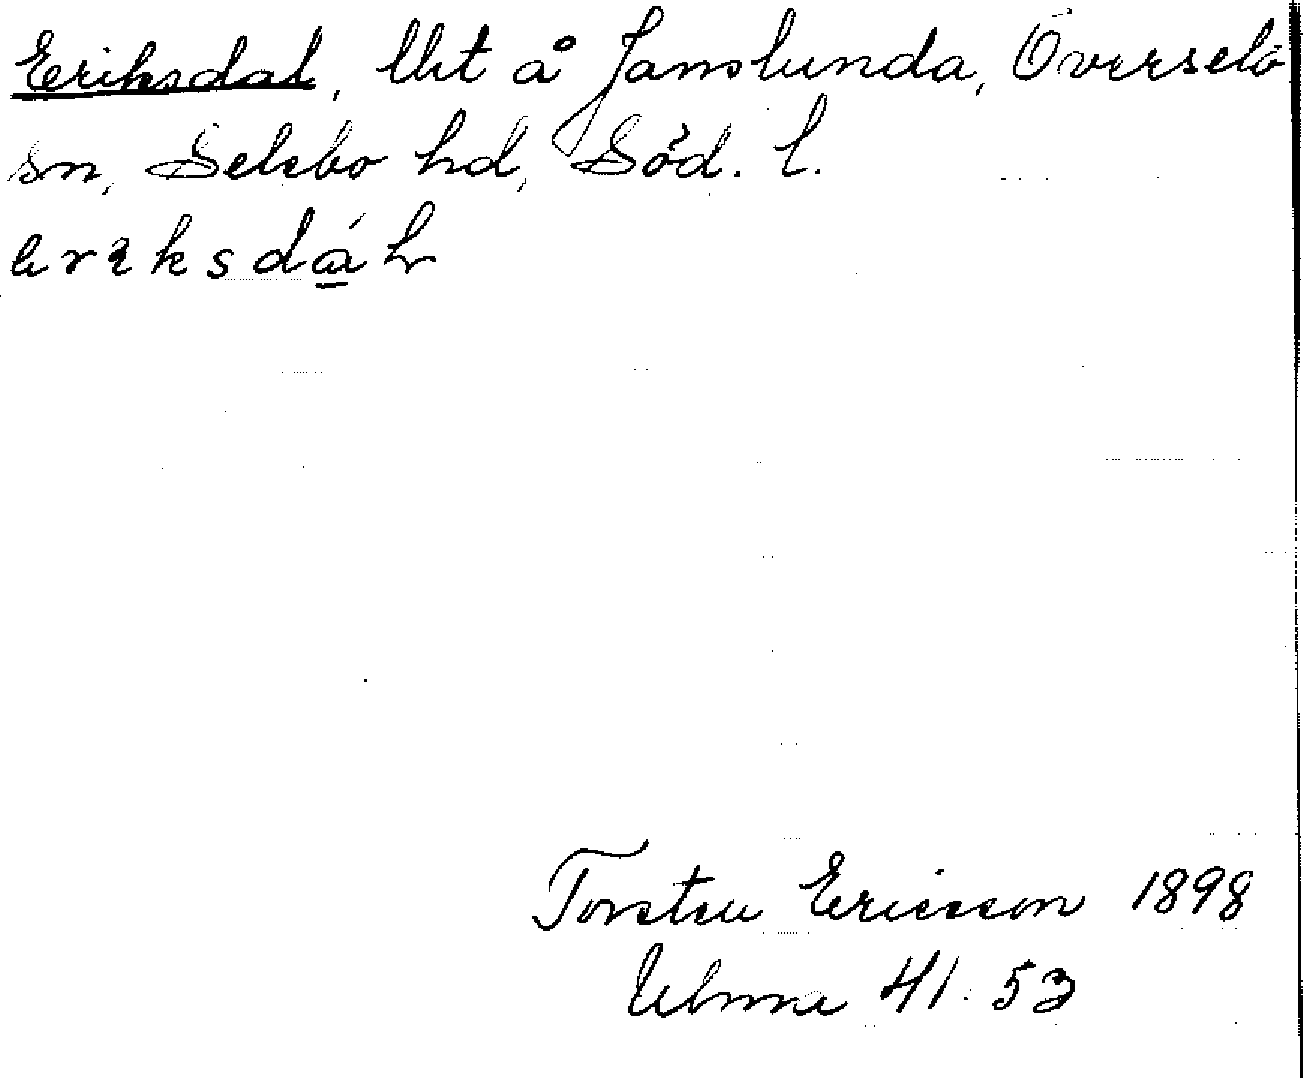 Eriksdal, lht å Janslunda, Överselö
sn, Selebo hd, Söd. l.
Torsten Ericsson 1898
Ulma 41:53